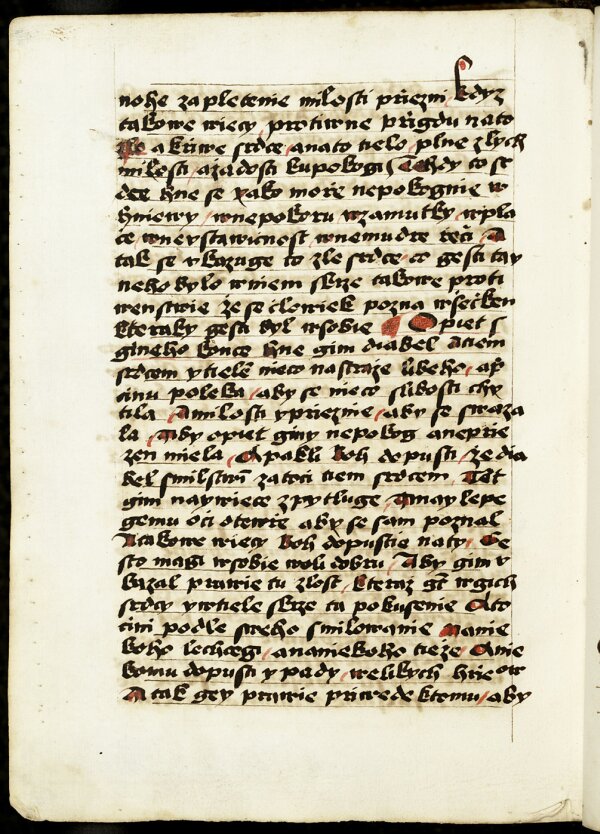 nohe zapletenie milosti prziezni kdyz
takowe wiecy protiwne przigdu na to
a krziwe srdce a na to tielo plne zlych
milosti a zadosti kupokogi Tehdy to sr
dce hne se yako morze nepokognie w
hniewy w nepokoru w zamutky w pla
cze w neystawicznost w nemudre rzeczi A
tak se vkazuge to zle srdce czo gesti tay
neho bylo w niem skrze takowe proti
wenstwie ze se czlowiek pozna wsseczken
kteraky gesti byl w sobie Opiet s
gineho konce hne gim diabel A tiem
srdcem y tielem nieco nastraze libeho a przi
cinu poleka aby se nieco slibosti chy
tila A milosti y przieznie aby se swaza
la Aby opiet giny nepokog a neprzie
zen miela A pakli boh dopusti ze dia
bel smilstwim zatoczi tiem srdcem Tet
gim naywiece zpytluge A naylepe
gemu oczi otewrze aby se sam poznal
A takowe wiecy boh dopustie na ty Ge
sto magi w sobie woli dobru Aby gim v
kazal prawie tu zlost kteraz gest w gich
srdcy y w tiele skrze ta pokussenie A to
czini podle sweho smilowanie na nie
koho lechczegi a na niekoho tieze A nie
komu dopusti y pady welikych hrziechow
A tak gey prawie przywede k tomu aby